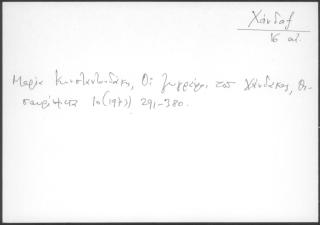 Χάνδαξ
16 αἰ.
Μαρία Κωνσταντουδάκη, Οἱ ζωγράφοι τοῦ Χάνδακος, Θη-
σαυρίσματα 10 (1973) 291-380.